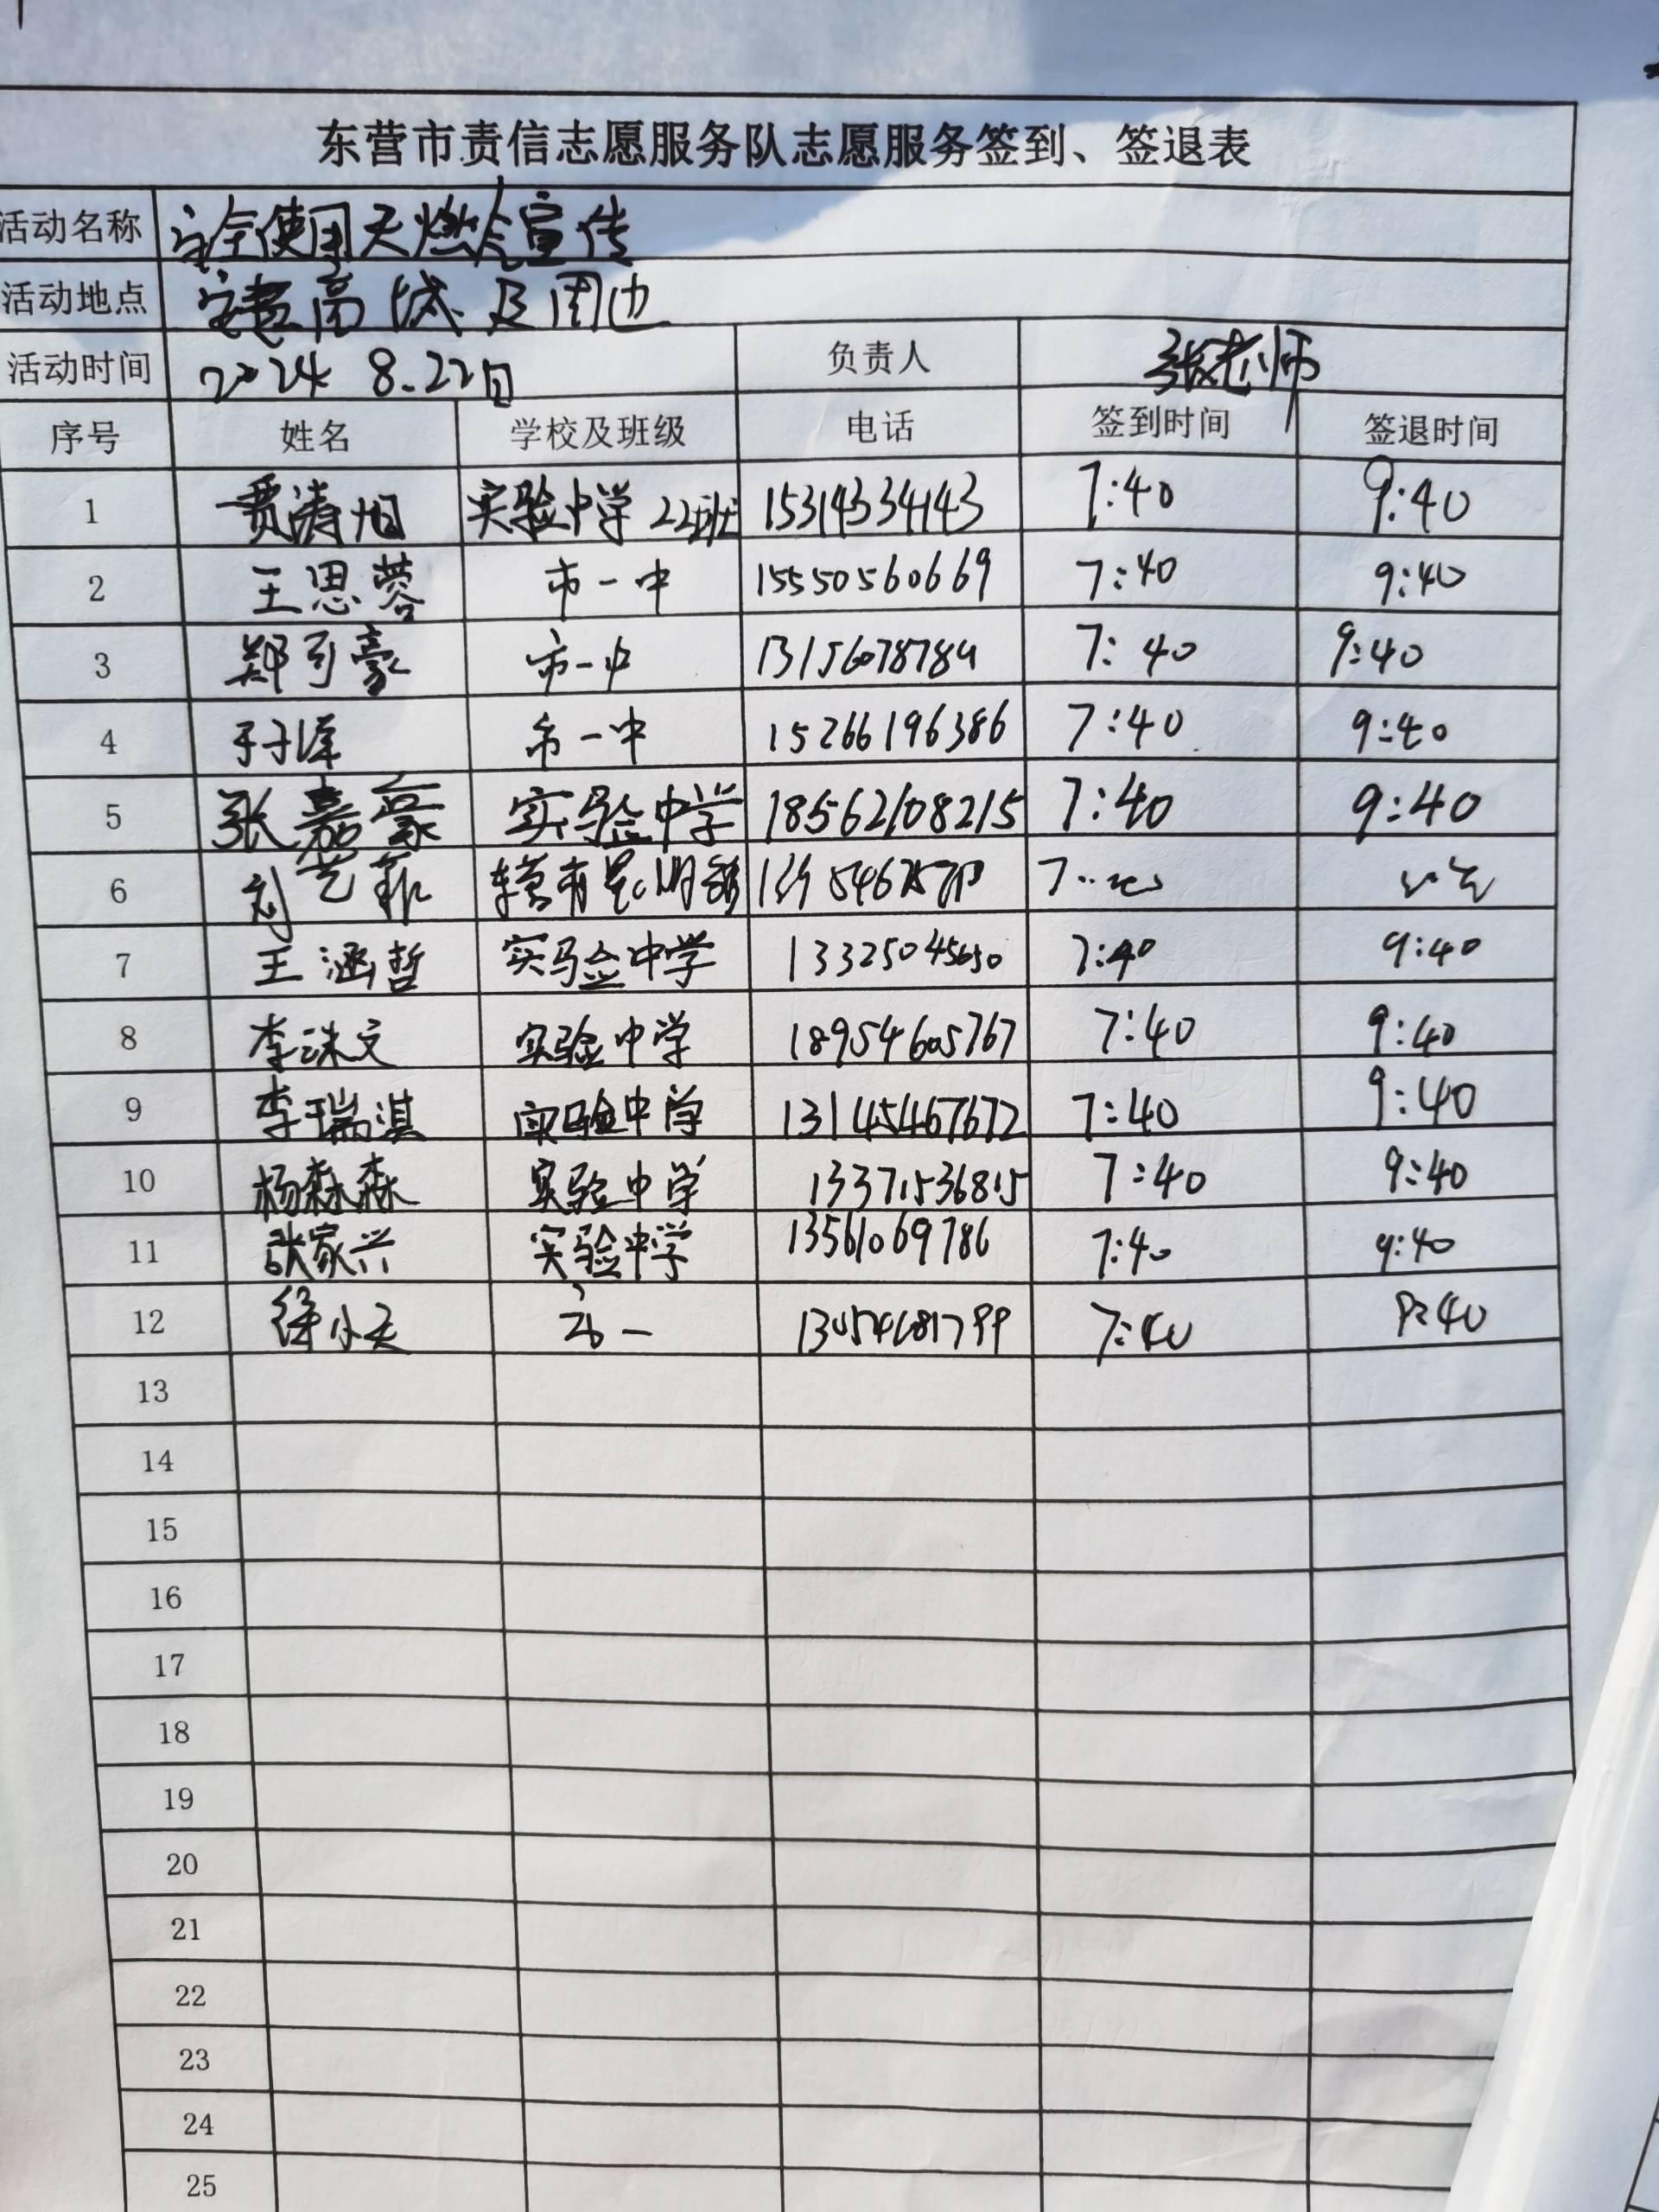 东营市责信志愿服务队志愿服务签到、签退表
活动名称 安全使用天燃气宣传
活动地点 高城及周边
活动时间 2024 8.22日 负责人 张老师
序号 姓名 学校及班级 电话 签到时间 签退时间
1 贾涛旭 实验中学 22班 15314334143 7:40 9:40
2 王思蓉 市一中 15550560669 7:40 9:40
3 郑可豪 市一中 7:40 9:40
4 于子泽 市一中 15266196386 7:40 9:40
5 张嘉豪 实验中学 18562108215 7:40 9:40
6 刘艺菲
7 王涵哲 实验中学 7:40 9:40
8 李洙文 实验中学 18954605767 7:40 9:40
9 李瑞淇 实验中学 13145467672 7:40 9:40
10 杨森森 实验中学 13371536815 7:40 9:40
11 张家兴 实验中学 13561069786 7:40 9:40
12 徐小天 市一 7:40 9:40
13
14
15
16
17
18
19
20
21
22
23
24
25